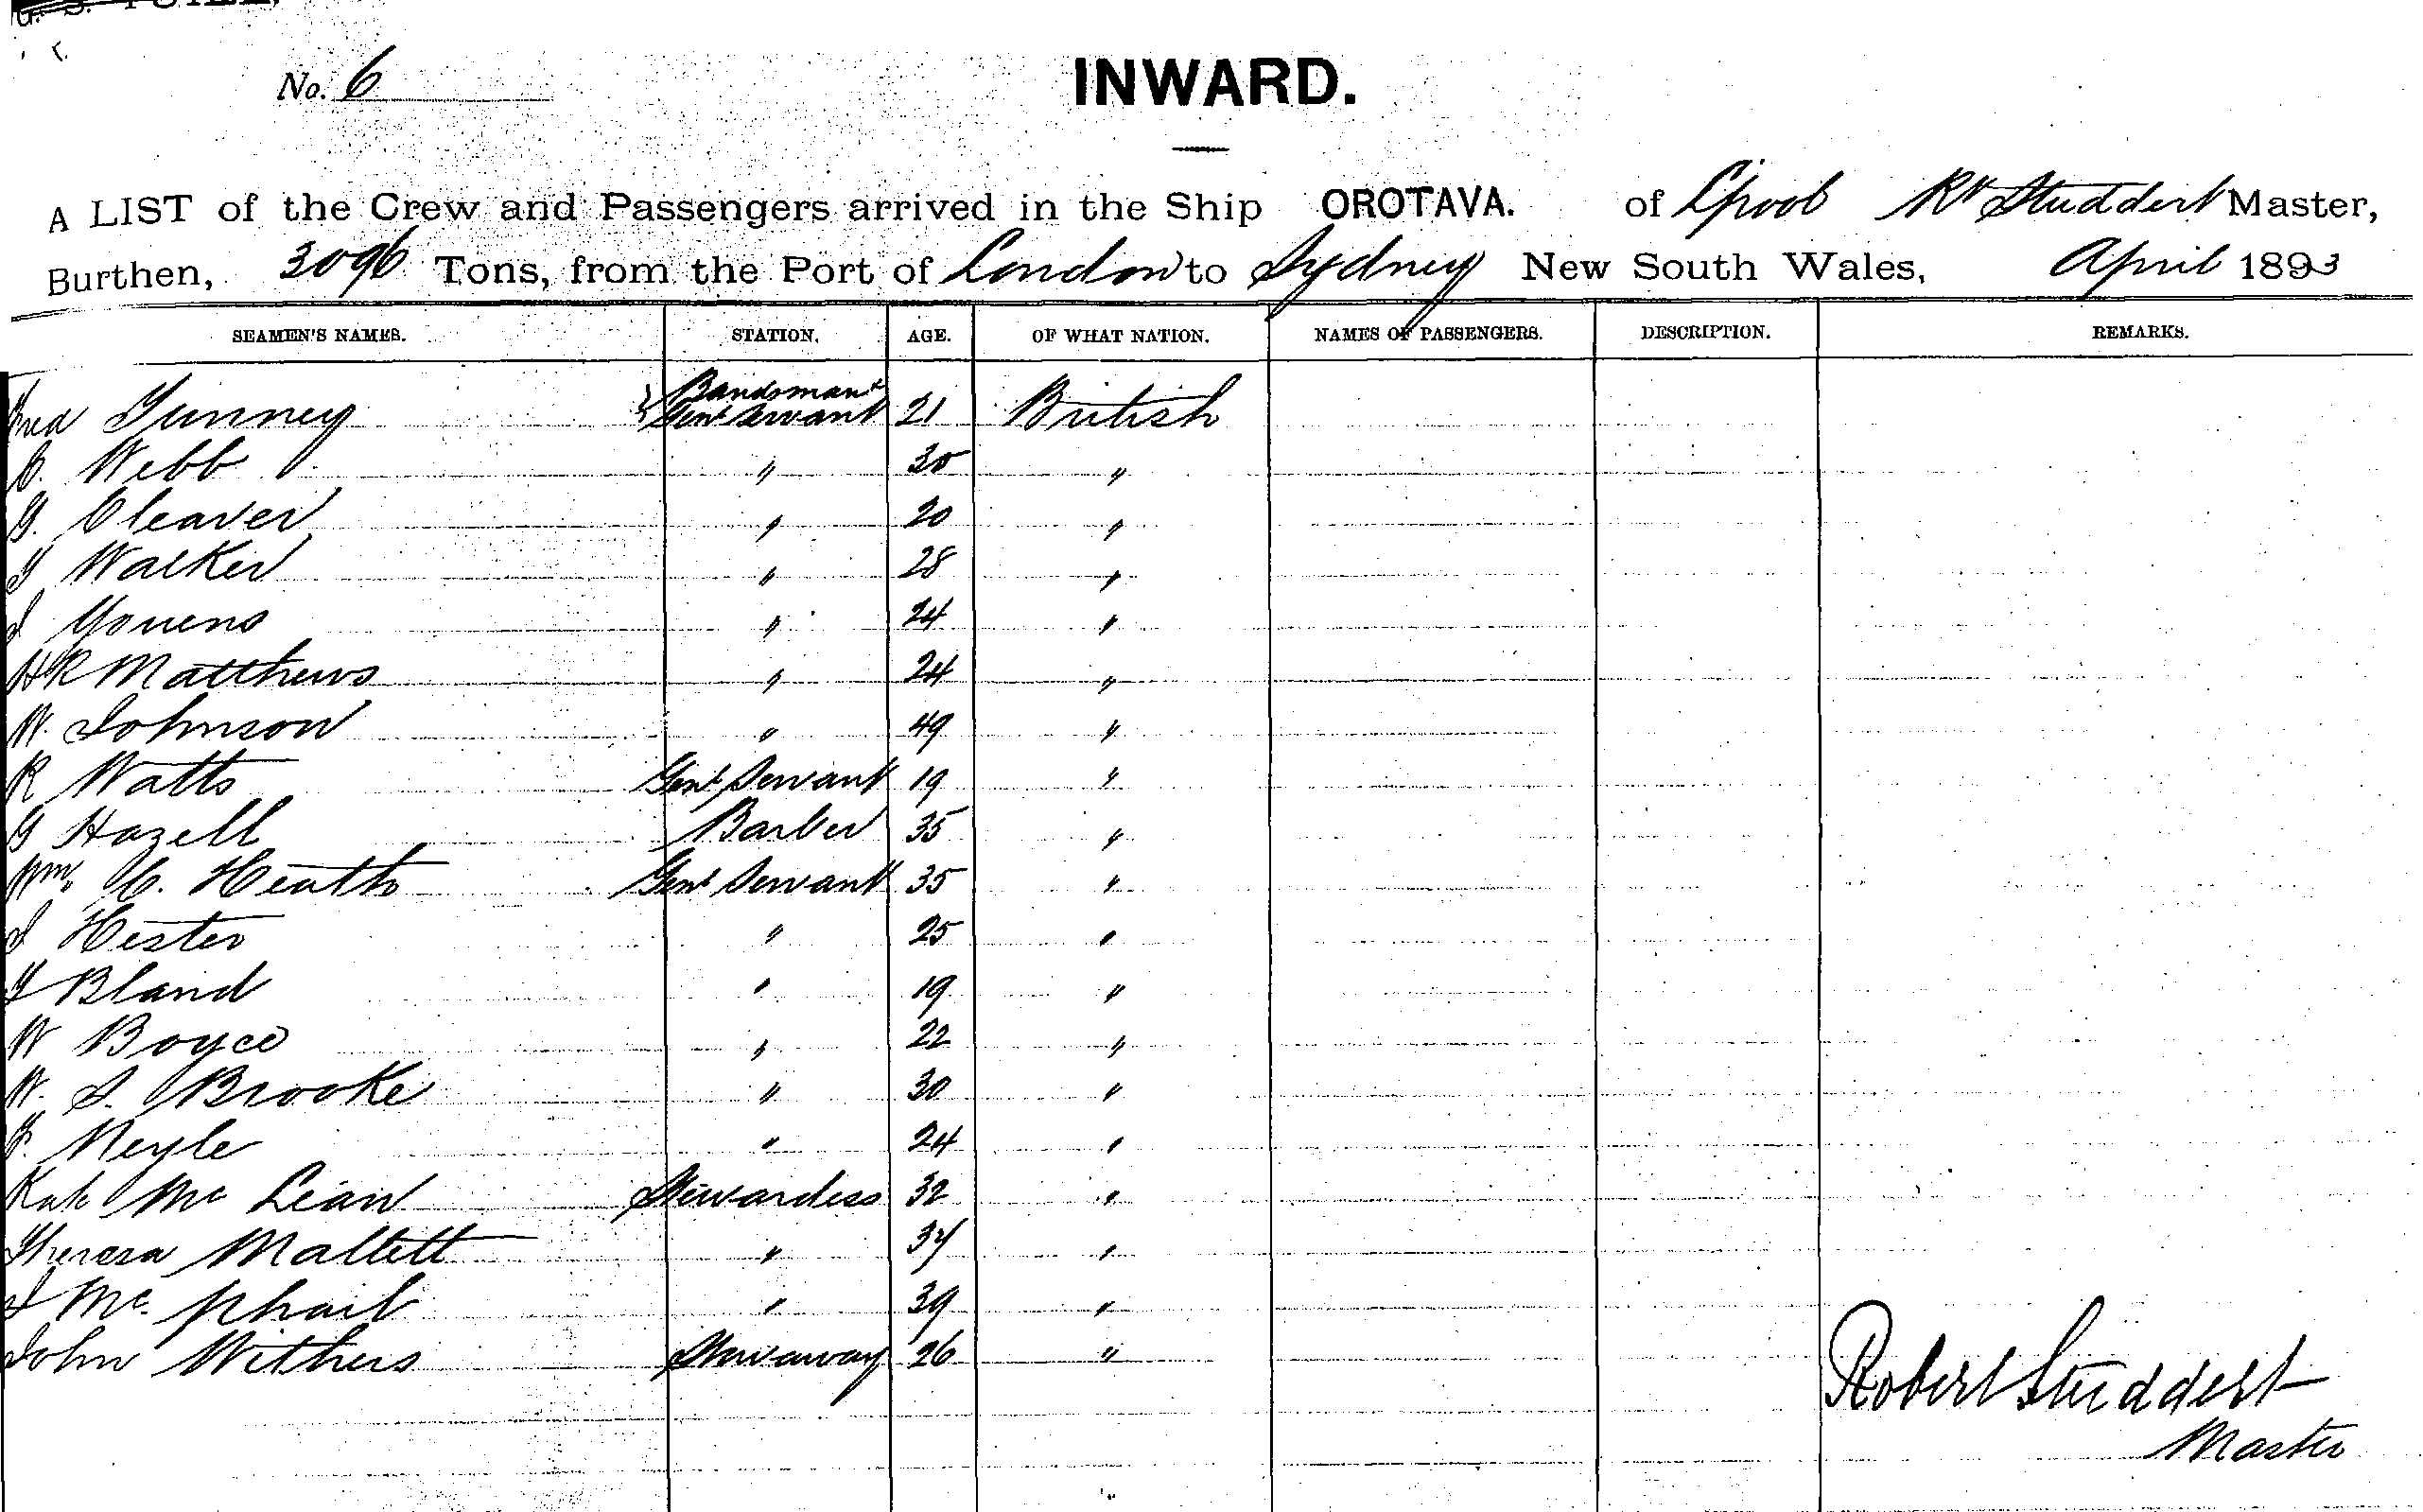 No. 6
INWARD.
A LIST of the Crew and Passengers arrived in the Ship OROTAVA. of L'pool Rt Studdert Master,
Burthen, 3096 Tons, from the Port of London to Sydney New South Wales, April 1893
SEAMEN'S NAMES. STATION. AGE. OF WHAT NATION. NAMES OF PASSENGERS. DESCRIPTION. REMARKS.
Fred Tunney Bandsman & Genl Servant 21 British
C. Webb " 30 "
G. Cleaver " 20 "
Walker " 28 "
J Youens " 24 "
HR Matthews " 24 "
W. Johnson " 49 "
R Watts Genl Servant 19 "
G Hazell Barber 35 "
Wm. C. Heath Genl Servant 35 "
J Hester " 25 "
Bland " 19 "
W Boyce " 22 "
W. S. Brooke " 30 "
F. Neyle " 24 "
Kate Mc Lean Stewardess 32 "
Theresa Mallett " 37 "
J Mc. phail " 39 "
John Withers Stowaway 26 "
Robert Studdert
Master